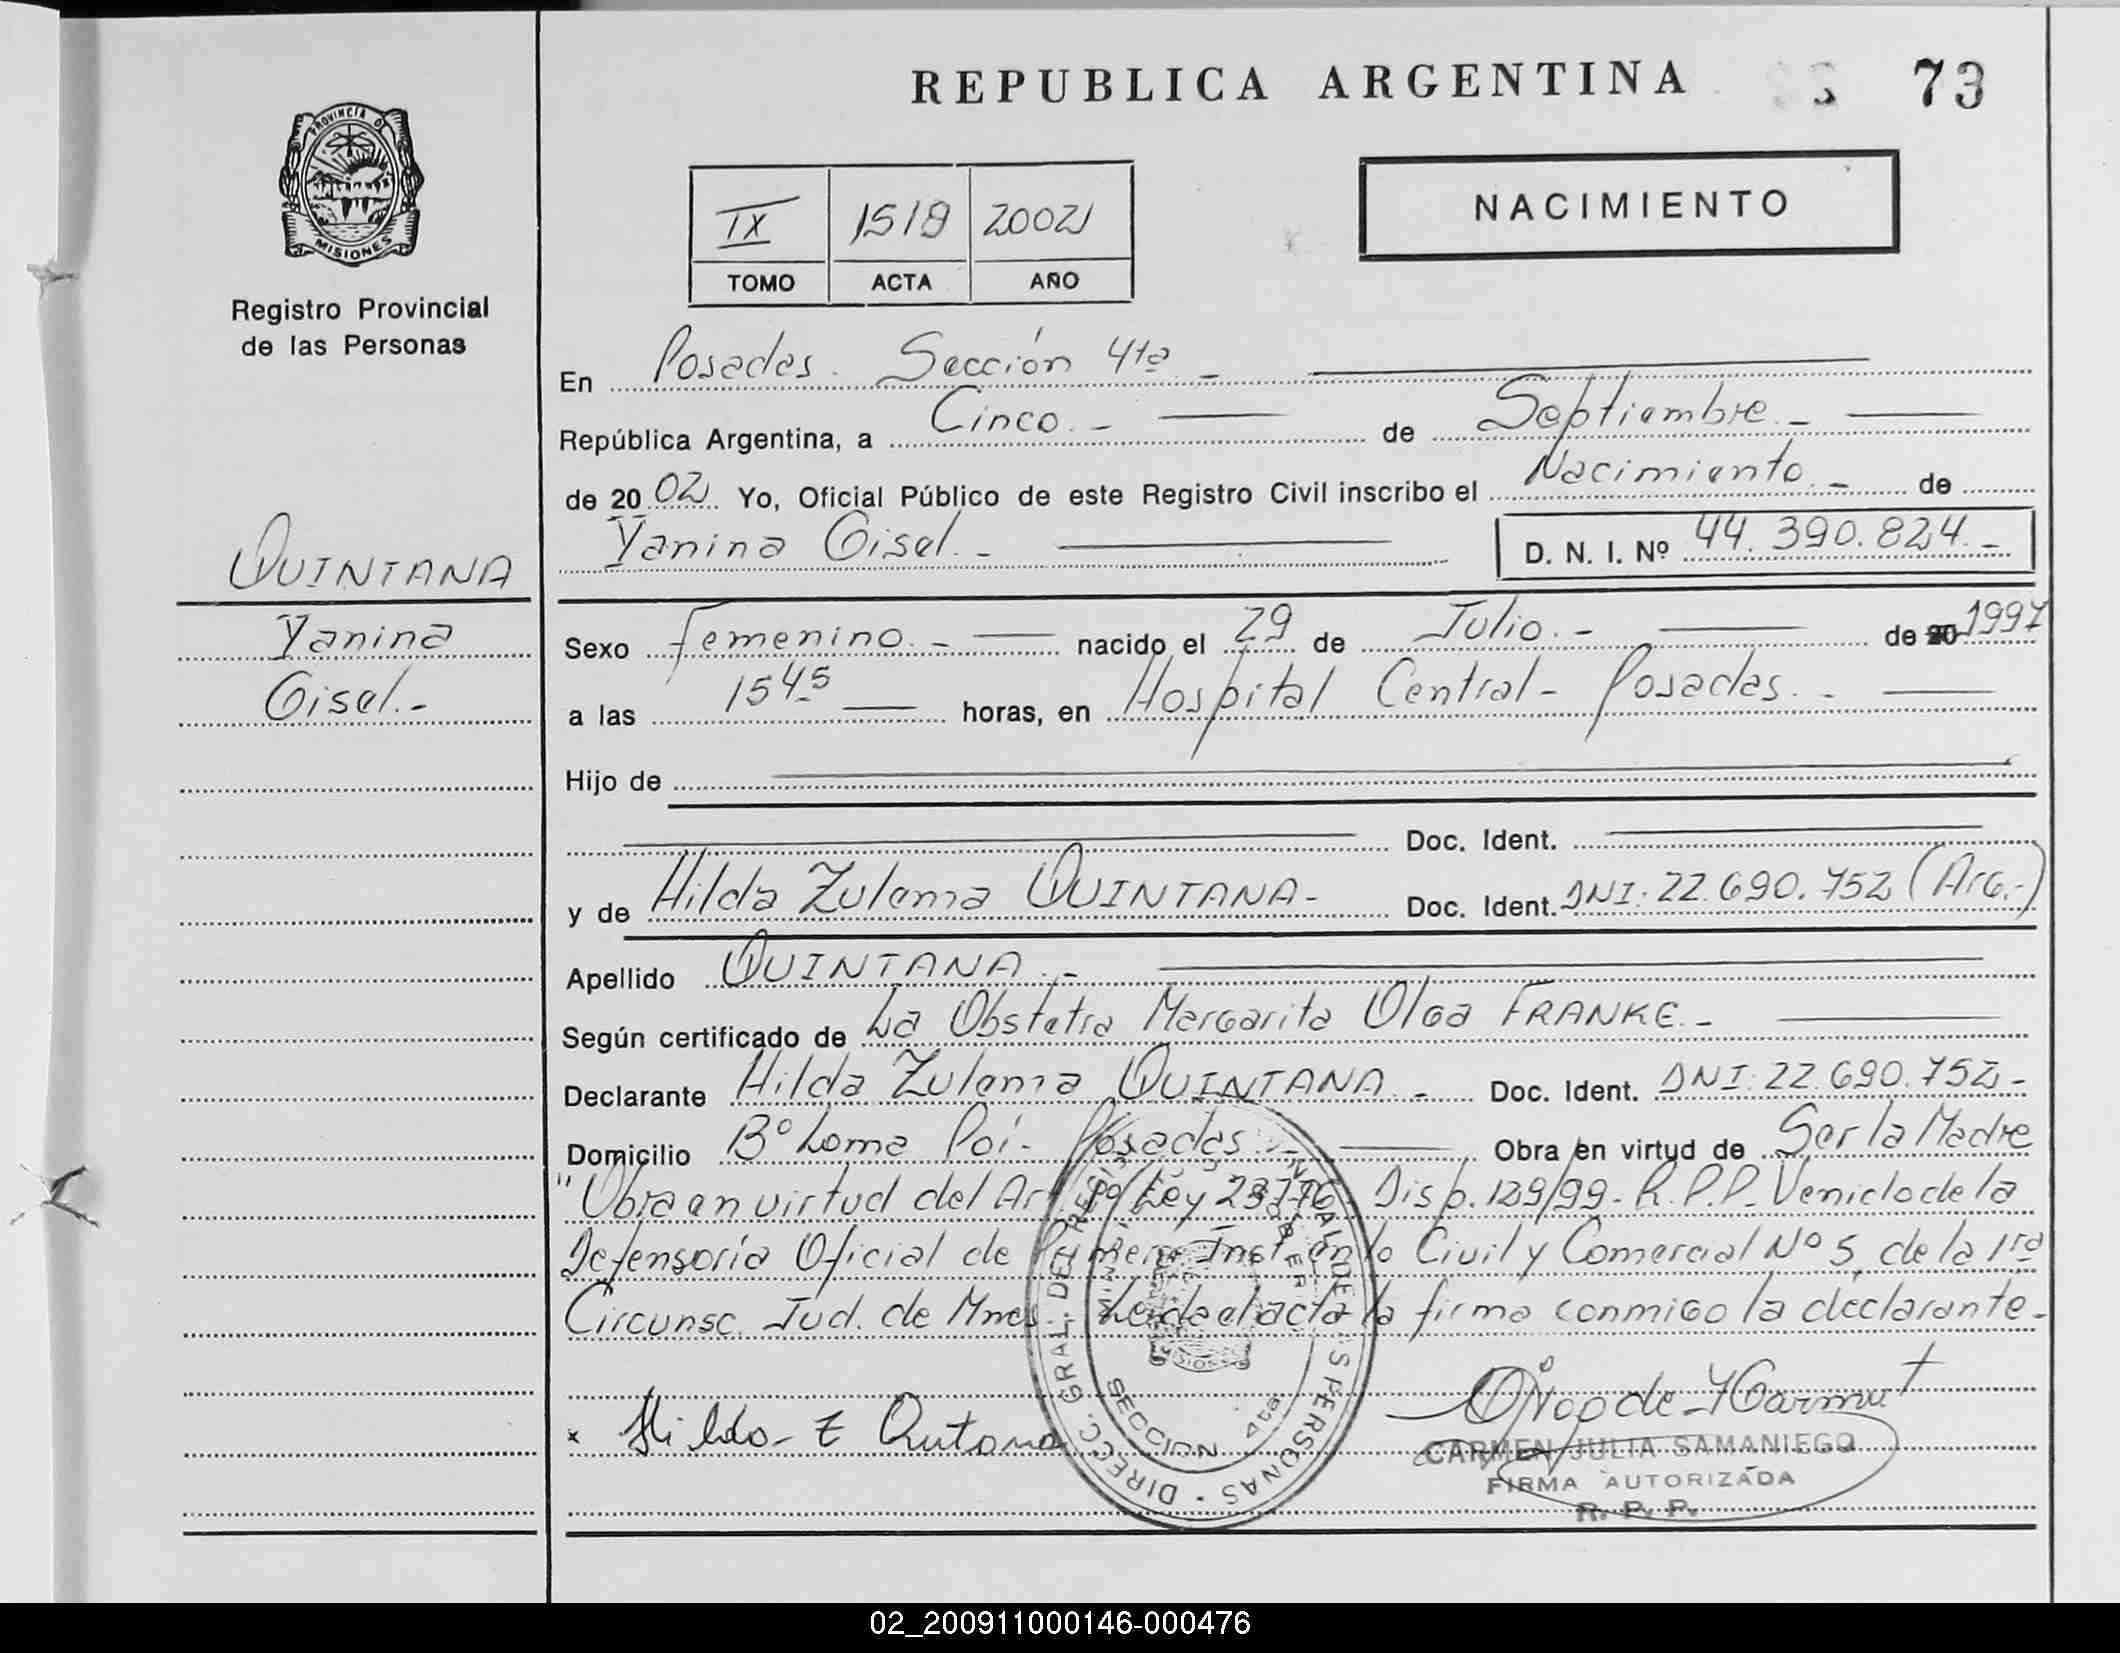 REPUBLICA ARGENTINA 73
PROVINCIA DE
MISIONES
Registro Provincial
de las Personas
NACIMIENTO
IX 1519 2002
TOMO ACTA AÑO
En Posadas. Sección 4ta -
República Argentina, a Cinco.- de Septiembre.-
de 20 02 Yo, Oficial Público de este Registro Civil inscribo el Nacimiento.- de
Yanina Gisel.- D. N. I. Nº 44.390.824.-
QUINTANA
Yanina
Gisel.-
Sexo Femenino.- nacido el 29 de Julio.- de 20 1997
a las 15 45 horas, en Hospital Central - Posadas.-
Hijo de
Doc. Ident.
y de Hilda Zulema QUINTANA- Doc. Ident. DNI: 22.690.752 (Arg.-)
Apellido QUINTANA.-
Según certificado de La Obstetra Margarita Olga FRANKE.-
Declarante Hilda Zulema QUINTANA.- Doc. Ident. DNI: 22.690.752-
Domicilio Bº Loma Poí- Posadas.- Obra en virtud de Ser la Madre
"Obra en virtud del Art. 1º Ley 23776- Disp. 129/99- R.P.P. Venido de la
Defensoría Oficial de Primera Inst. en lo Civil y Comercial Nº 5, de la 1ra
Circunsc. Jud. de Mnes. Leida el acta la firma conmigo la declarante-
x Hilda Z Quintana
CARMEN JULIA SAMANIEGO
FIRMA AUTORIZADA
R. P. P.
SECCION 4ta
02_200911000146-000476